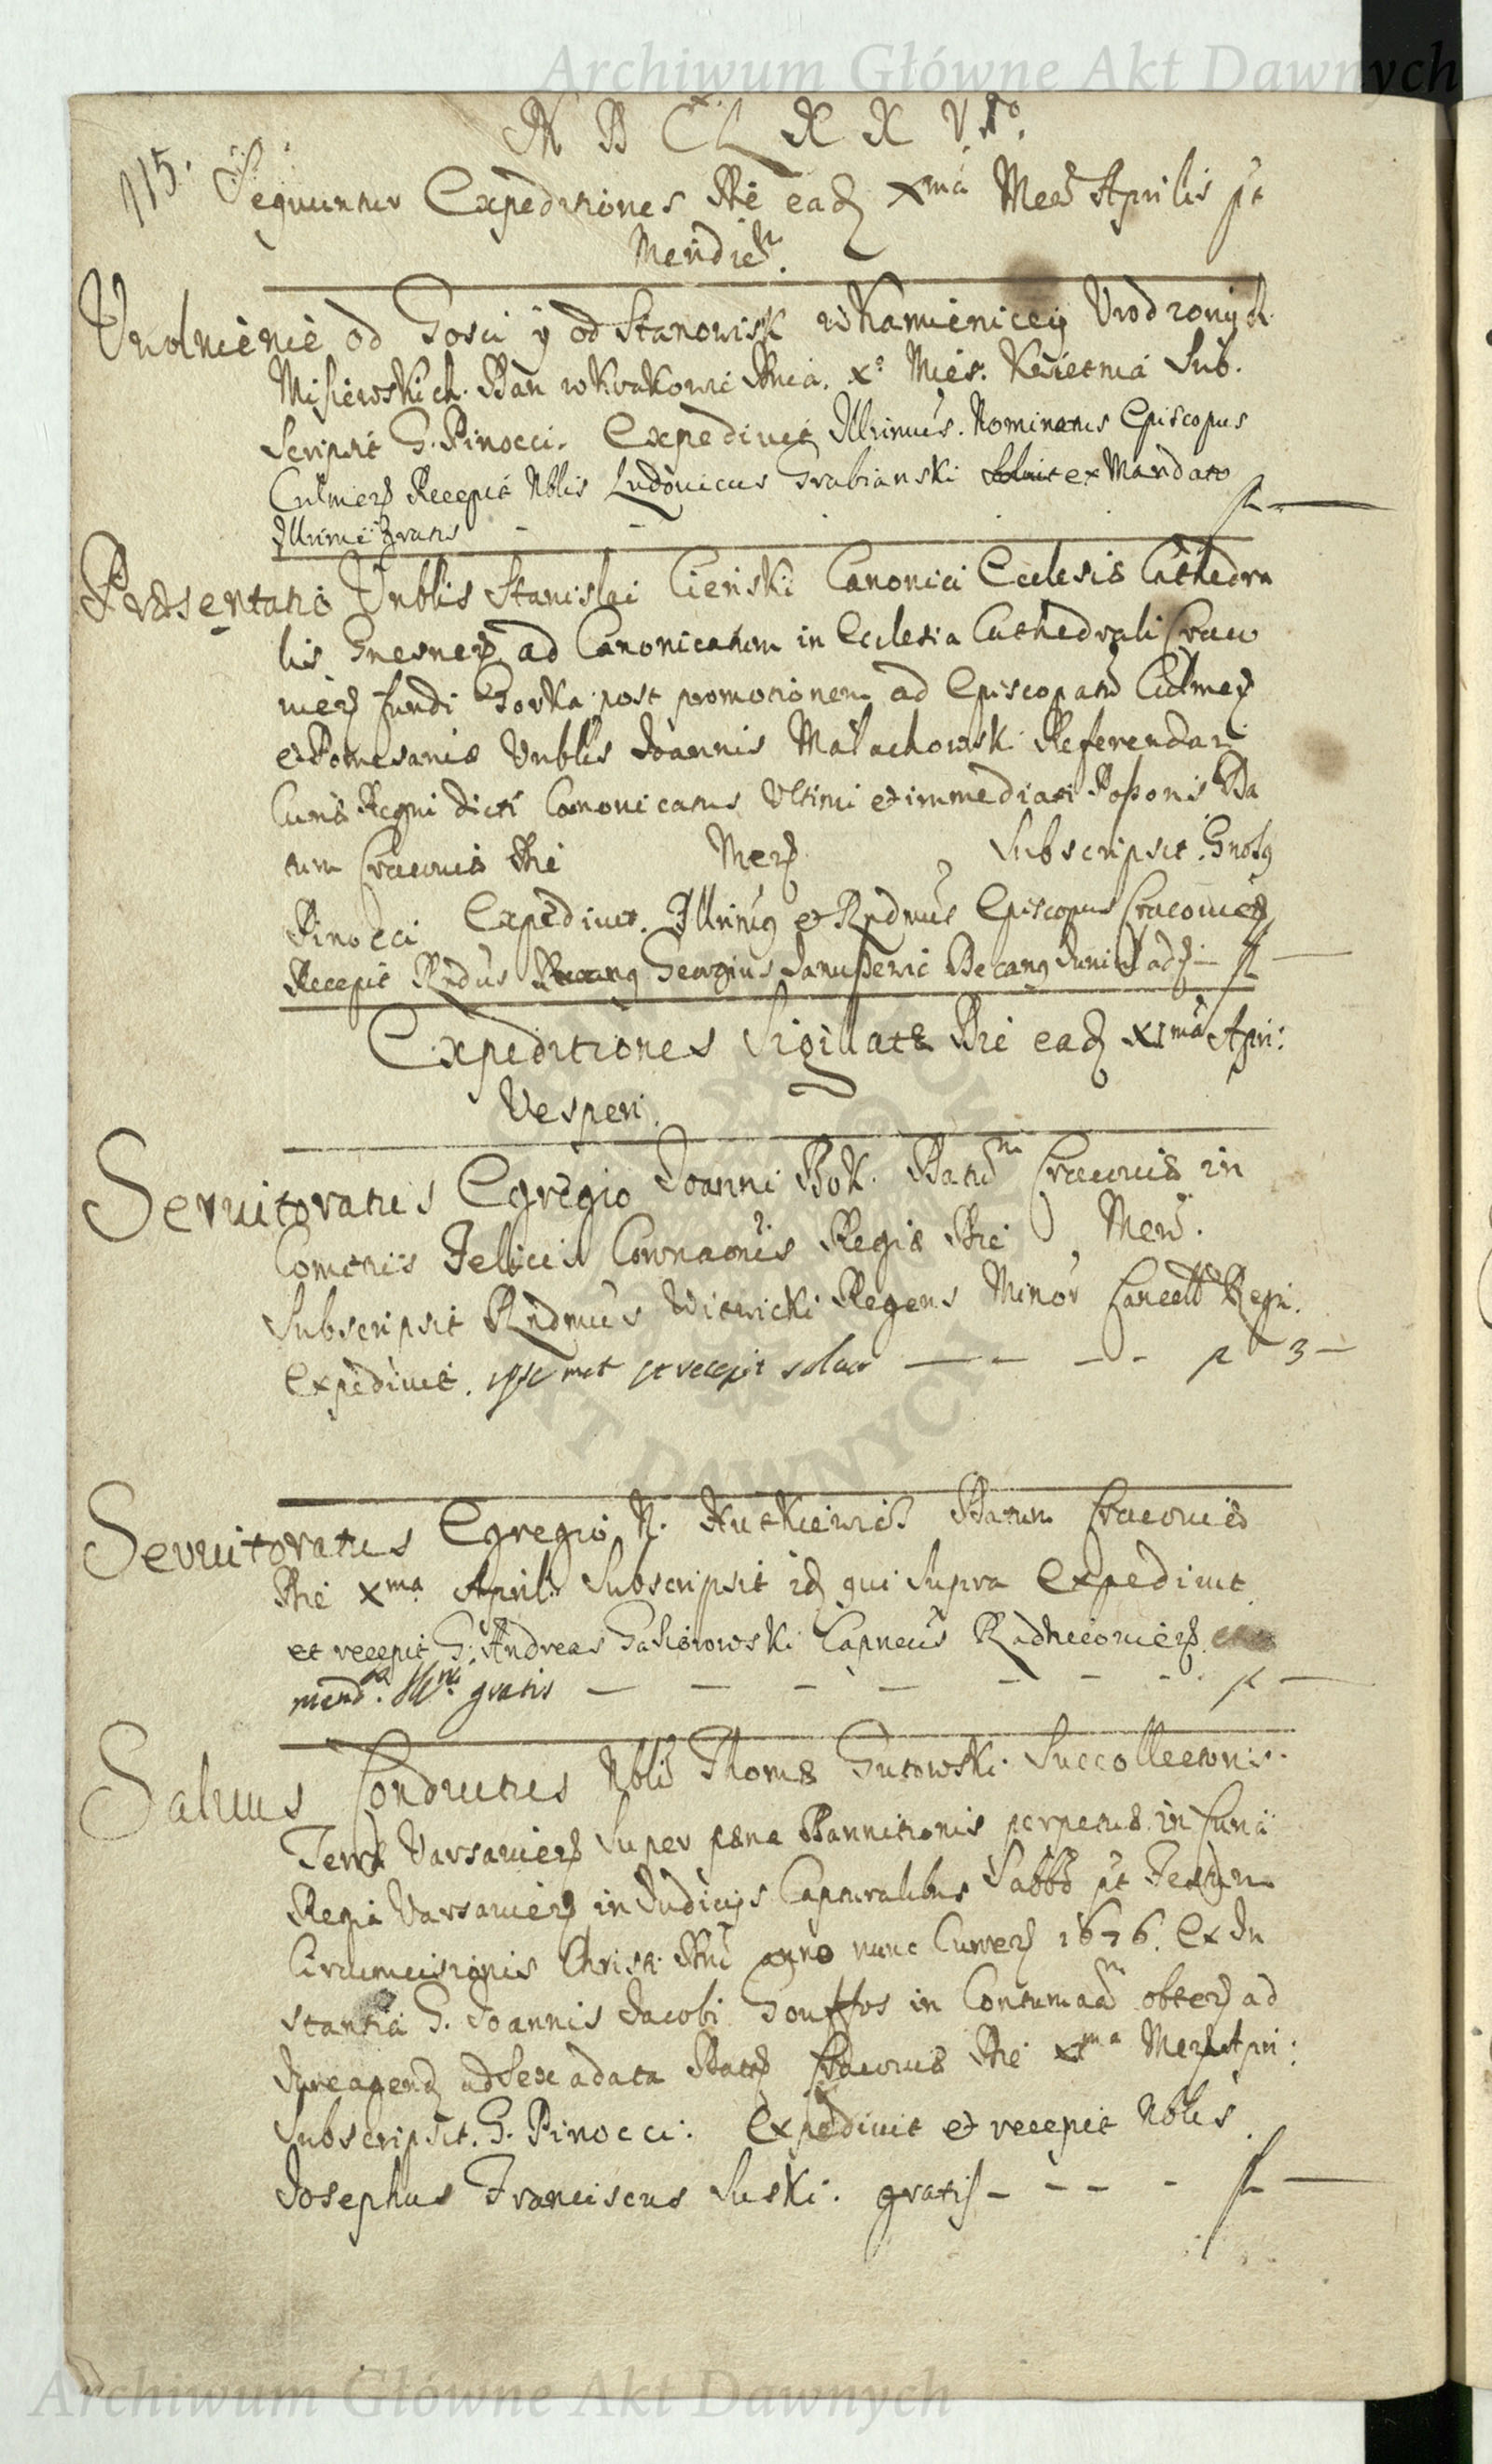 Archiwum Główne Akt Dawnych
M D C L X X VIto.
115.
Sequuntur Expeditiones Die eadem Xma Mens Aprilis pt
Meridiem.
Uwolnienie od Gosci y od Stanowisk w Kamienicey Urodzonych
Misiewskich. Dan w Krakowie Dnia. Xo Mies. Kwietnia Sub.
scripsit G. Pinocci. Expedivit Illrimus. Nominatus Episcopus
Culmens Recepit Nblis Ludovicus Grabianski ex Mandato
Illrimi gratis
Præsentatio Vnblis Stanislai Cienski Canonici Ecclesiæ Cathedra
lis Gnesnens ad Canonicatum in Ecclesia Cathedrali Craco
viens fundi Gorka post promotionem ad Episcopatum Culmens
et Pomesaniæ Vnblis Joannis Małachowski Referendarii
Curiæ Regni dicti Canonicatus Ultimi et immediati Possoris Da
tum Cracoviæ Die Mens Subscripsit Gnosus
Pinocci Expedivit. Illrimus et Rndmus Episcopus Cracoviens
Recepit Rndus Georgius Janussewic Decanus
Expeditiones Sigillatæ Die eadem XIma Apri:
Vesperi.
Servitoratus Egregio Joanni Bok. Datum Cracoviæ in
Comitiis Felicis Coronaonis Regiæ Die Mens.
Subscripsit Rndmus Witwicki Regens Minor Cancell Regni.
Expedivit. ipsemet et recepit soluit — — — — f 3 —
Servitoratus Egregio N. Hutkiewicz Datum Cracoviæ
Die Xma April. Subscripsit idem qui supra Expedivit
et recepit G. Andreas Gasiorowski Capneus Radziejoviens
mend. gratis — — — — — — — f —
Salvus Conductus Nbli Thomæ Gutowski Succollectoris.
Terræ Varsaviens super pæna Bannitionis perpetuæ in Curia
Regia Varsaviens in Judicijs Capturalibus Sabbo pt Festum
Circumcisionis Christi Dni anno nunc Currens 1676. Ex In
stantia G. Joannis Jacobi Gouffos in Contumaam obtens ad
Jure agend ad Sex a data Dattz Cracoviæ Die XIma Mens Apri:
Subscripsit. G. Pinocci. Expedivit et recepit Nblis.
Josephus Franciscus Suski. gratis — — — — f —
Archiwum Główne Akt Dawnych